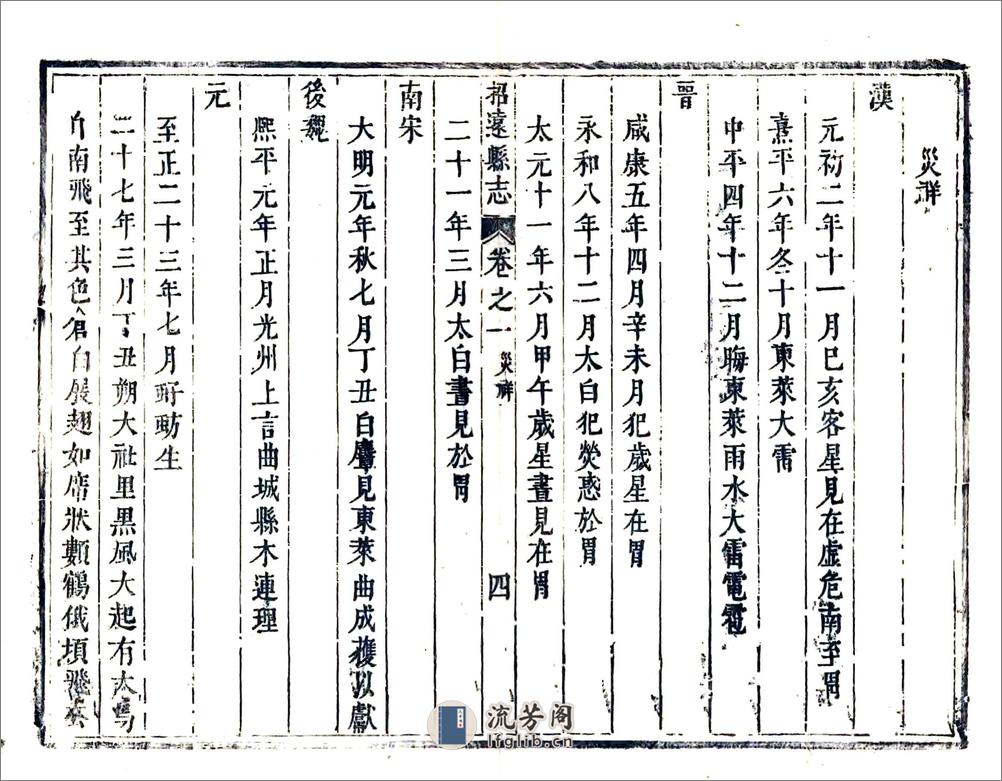 災祥
漢
元初二年十一月巳亥客星見在虛危南至胃
熹平六年冬十月東萊大雷
中平四年十二月晦東萊雨水大雷電雹
晉
咸康五年四月辛未月犯歲星在胃
永和八年十二月太白犯熒惑於胃
太元十一年六月甲午歲星晝見在胃
招遠縣志 卷之一 災祥 四
二十一年三月太白晝見於胃
南宋
大明元年秋七月丁丑白麞見東萊曲成獲以獻
後魏
熙平元年正月光州上言曲城縣木連理
元
至正二十三年七月蚄生
二十七年三月丁丑朔大社里黑風大起有大鳥
自南飛至其色倉白展翅如席狀類鶴俄頃飛去
流芳阁
lfglib.cn